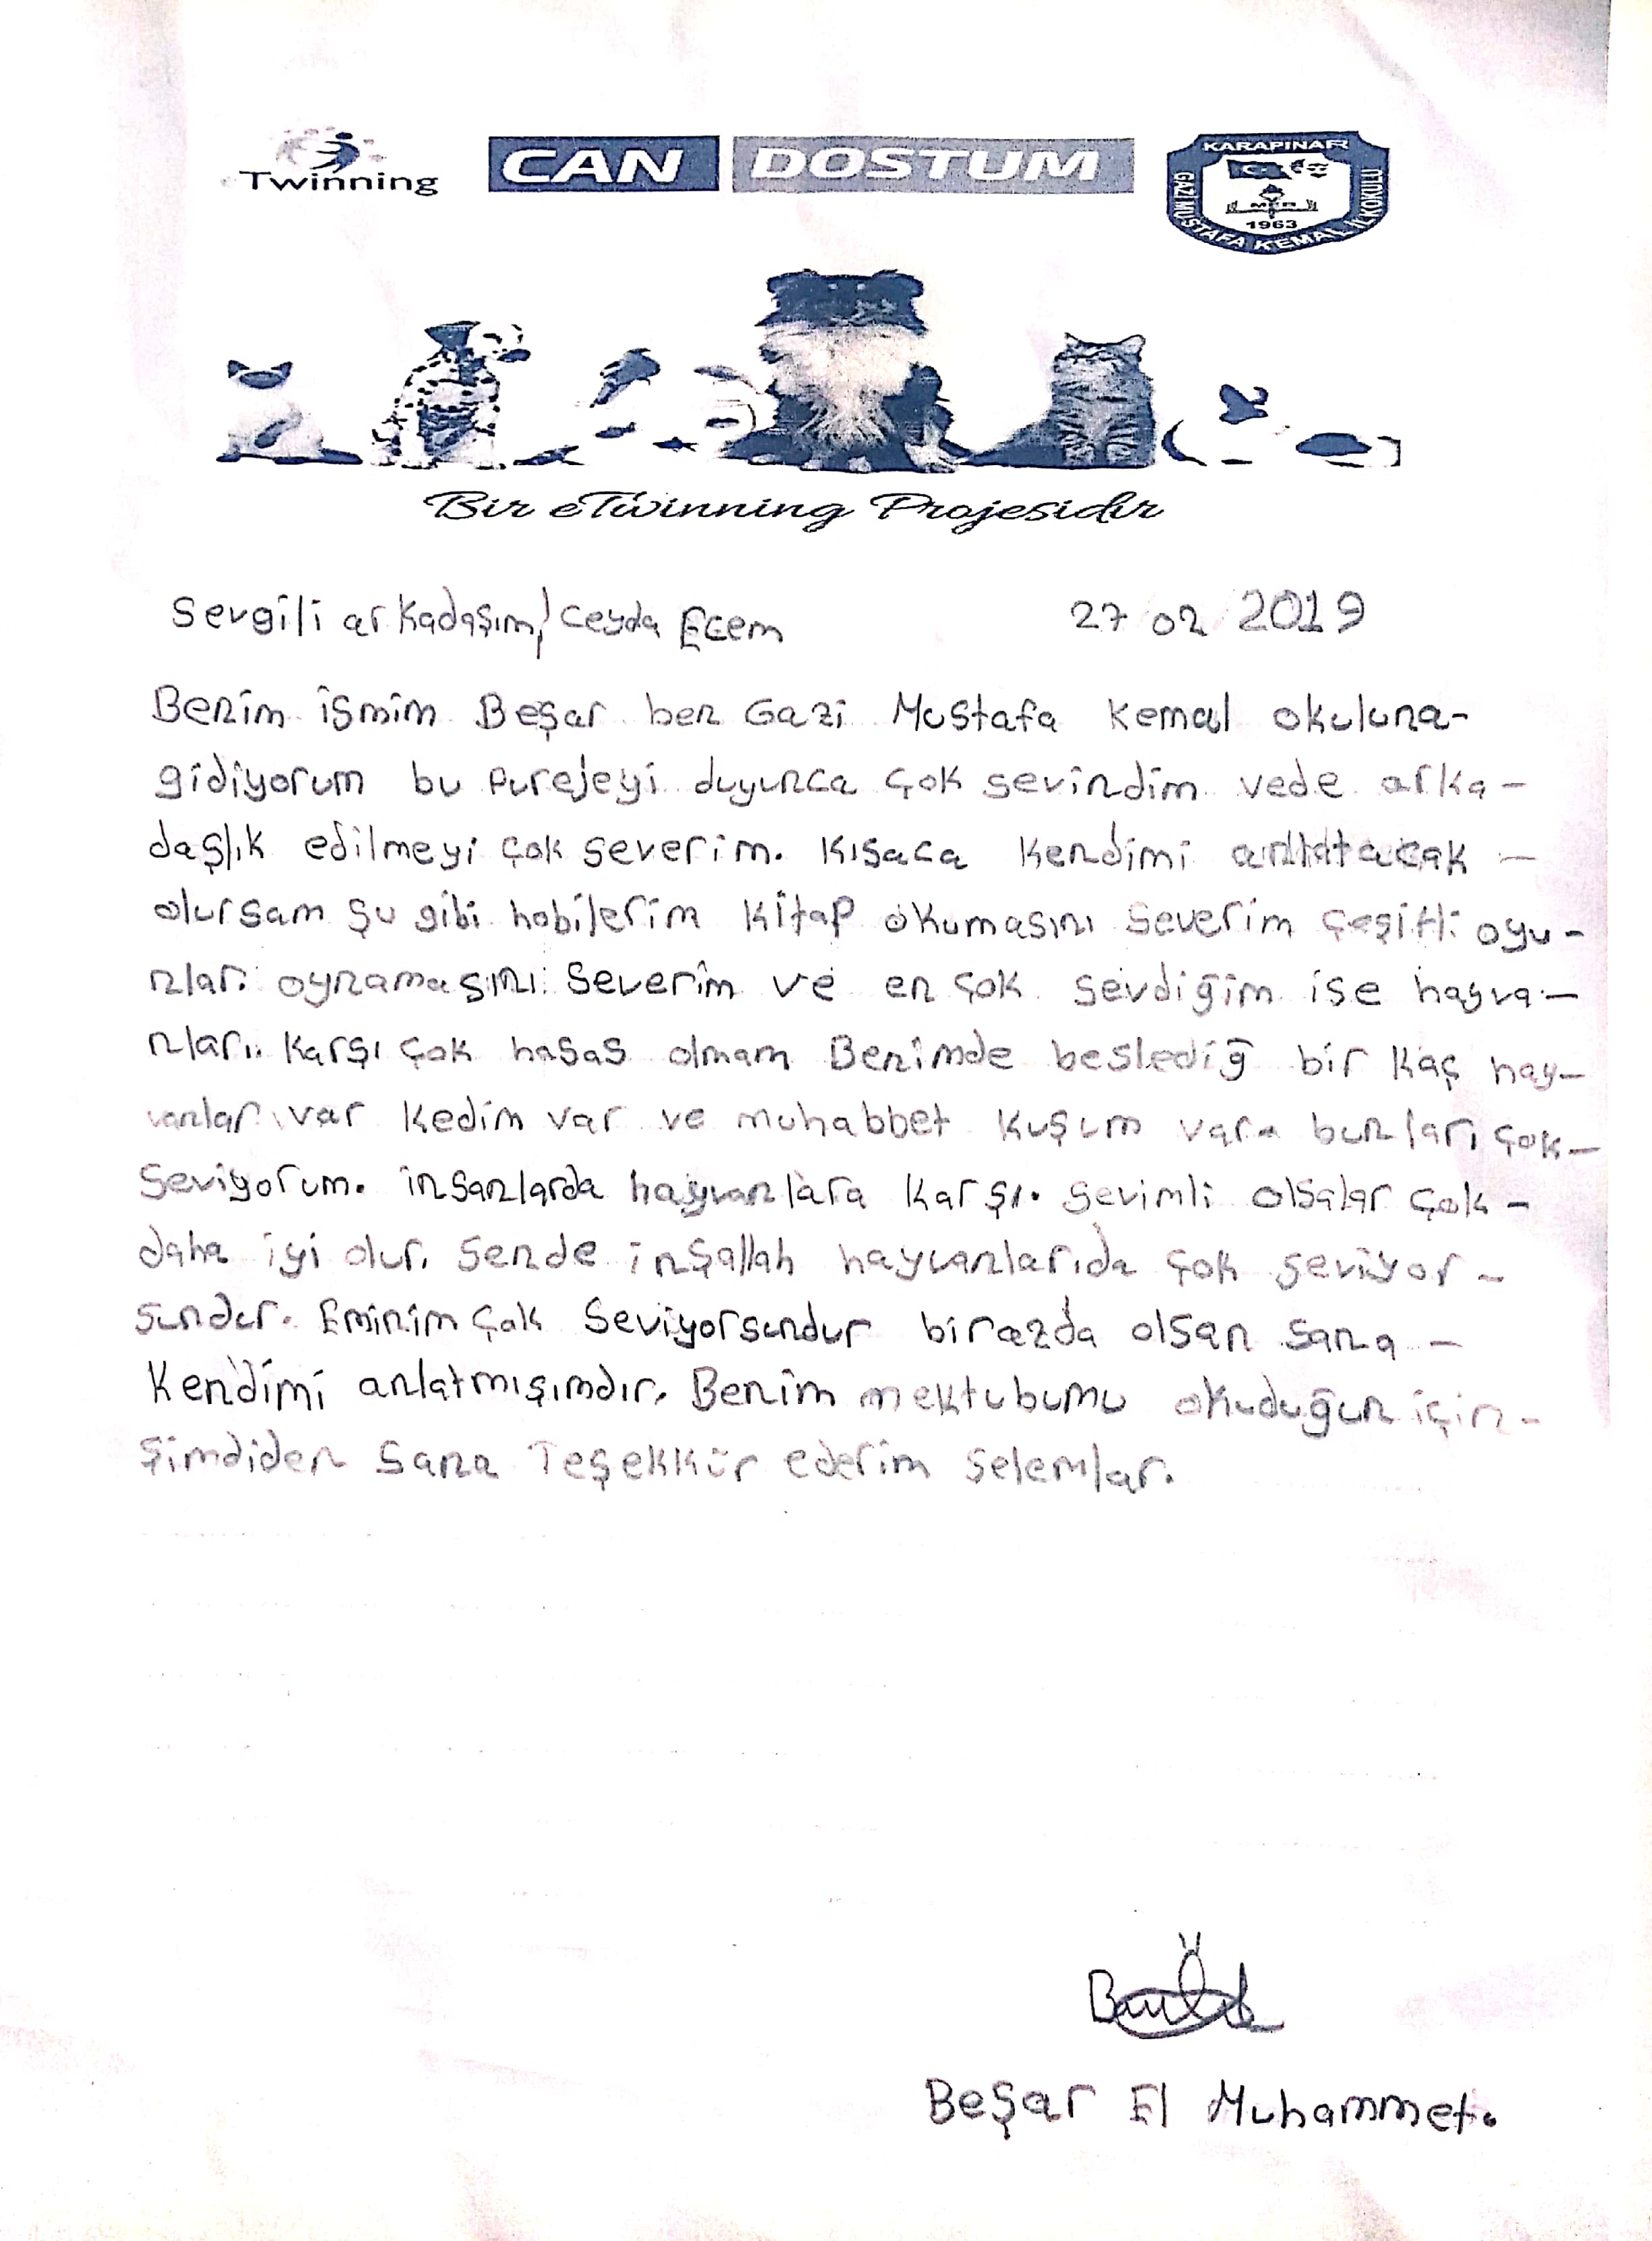 Twinning
CAN DOSTUM
KARAPINAR
GAZİ MUSTAFA KEMAL İLKOKULU
1963
Bir eTwinning Projesidir
Sevgili arkadaşım, Ceyda Ecem 27 02 2019
Benim ismim Beşar ben Gazi Mustafa Kemal okuluna-
gidiyorum bu purejeyi duyunca çok sevindim vede arka-
daşlık edilmeyi çok severim. Kısaca Kendimi anlatacak -
olursam şu gibi hobilerim Kitap okumasını severim çeşitli oyu-
nları oynamasını severim ve en çok sevdiğim ise hayva-
nları. Karşı çok hasas olmam Benimde beslediğ bir kaç hay-
vanlar var Kedim var ve muhabbet kuşum var. bunları çok-
seviyorum. insanlarda hayvanlara karşı. sevimli olsalar çok-
daha iyi olur. Sende inşallah hayvanlarıda çok seviyor-
sundur. Eminim çok seviyorsundur birazda olsan sana -
Kendimi anlatmışımdır. Benim mektubumu okuduğun için-
şimdiden sana Teşekkür ederim selemlar.
Beşar El Muhammet.